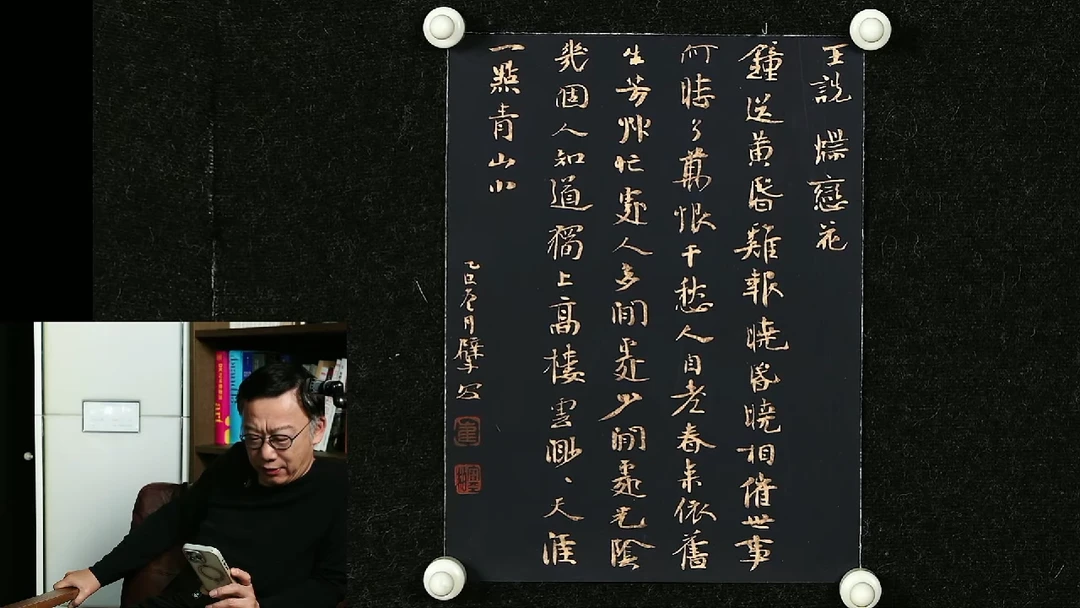 王詵 蝶戀花
鐘送黃昏雞報曉昏曉相催世事
何時了萬恨千愁人自老春來依舊
生芳艸忙處人多閒處少閒處光陰
幾個人知道獨上高樓雲渺、天涯
一點青山小
乙巳月